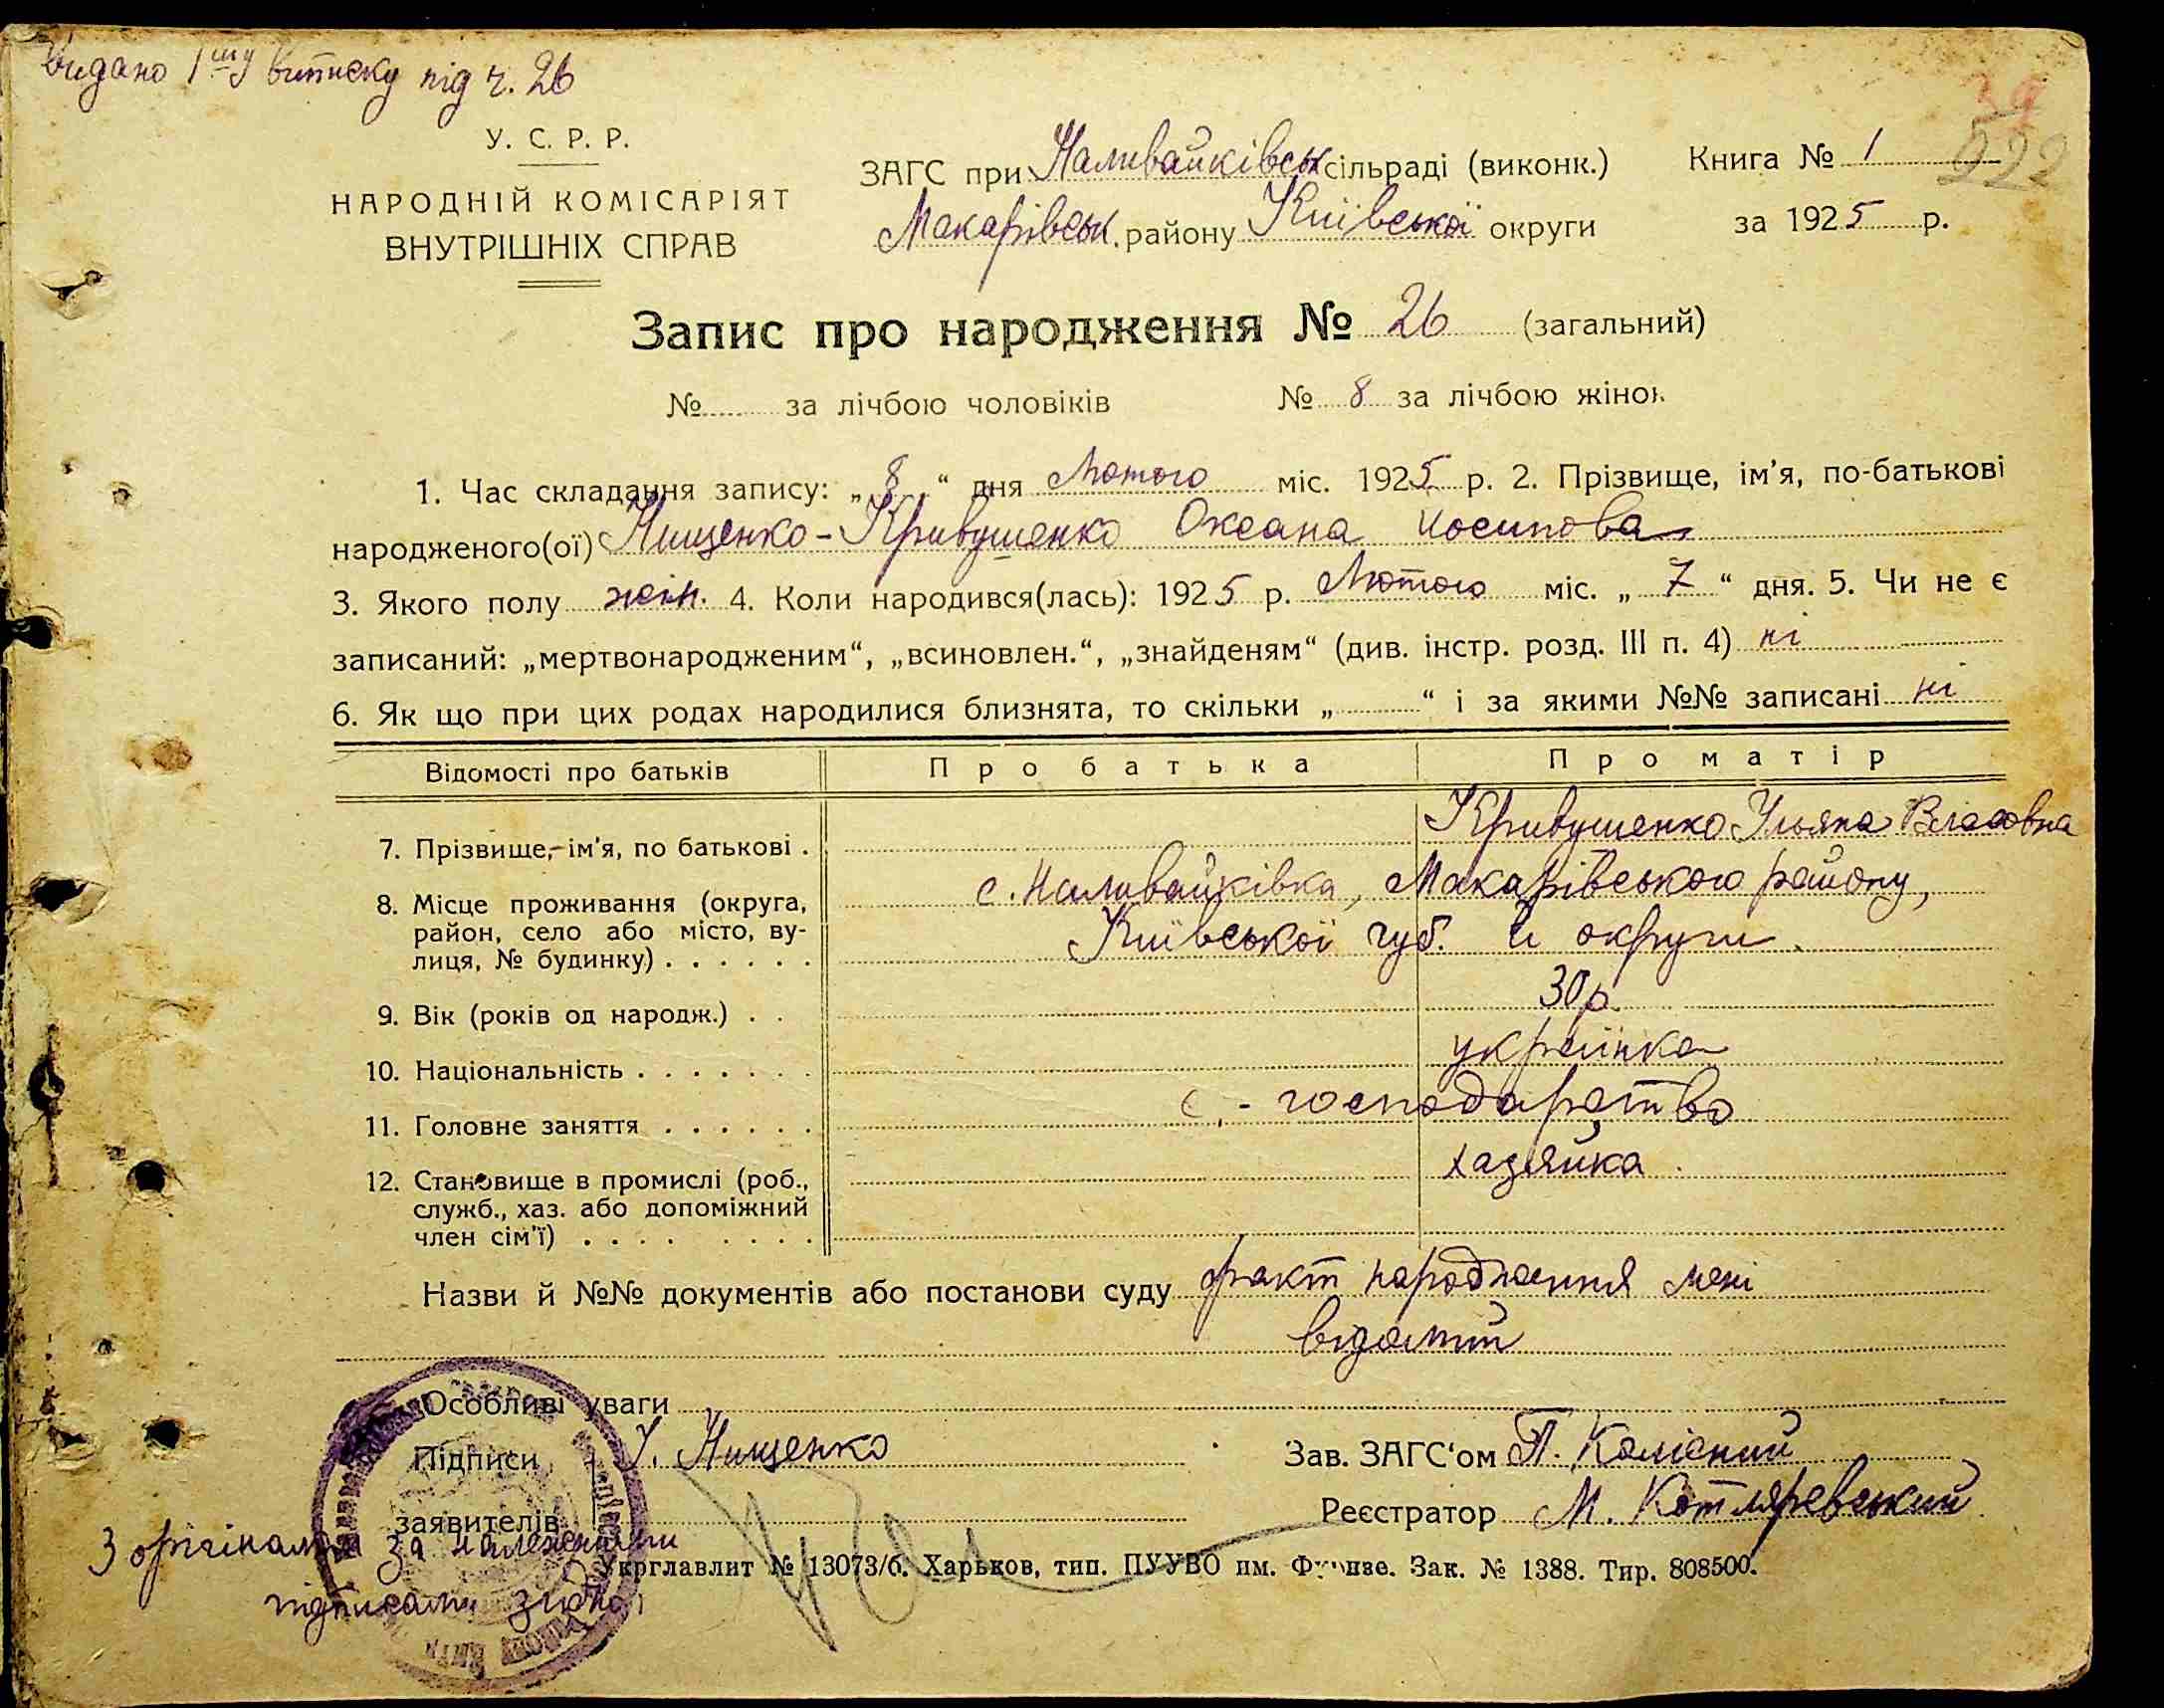 Видано 1шу виписку під ч. 26
39
522
У. С. Р. Р.
НАРОДНІЙ КОМІСАРІЯТ
ВНУТРІШНІХ СПРАВ
ЗАГС при Наливайківськ сільраді (виконк.)
Макарівськ. району Київської округи
Книга № 1
за 1925 р.
Запис про народження № 26 (загальний)
№ за лічбою чоловіків № 8 за лічбою жінок
1. Час складання запису: „8“ дня Лютого міс. 1925 р. 2. Прізвище, ім'я, по-батькові
народженого(ої) Нищенко-Кривушенко Оксана Иосипова
3. Якого полу жін. 4. Коли народився(лась): 1925 р. Лютого міс. „7“ дня. 5. Чи не є
записаний: „мертвонародженим“, „всиновлен.“, „знайденям“ (див. інстр. розд. III п. 4) ні
6. Як що при цих родах народилися близнята, то скільки „ “ і за якими №№ записані ні
Відомості про батьків Про батька Про матір
7. Прізвище, ім'я, по батькові . Кривушенко Ульяна Власовна
8. Місце проживання (округа, район, село або місто, вулиця, № будинку) . . . . . . с. Наливайківка, Макарівського району,
Київської губ. й округи.
9. Вік (років од народж.) . . 30 р.
10. Національність . . . . . . . українка
11. Головне заняття . . . . . . с.-господарство
12. Становище в промислі (роб., служб., хаз. або допоміжний член сім'ї) . . . . . . . . хазяйка.
Назви й №№ документів або постанови суду факт народження мені
відомий
Особливі уваги
Підписи заявителів У. Нищенко
Зав. ЗАГС'ом П. Колісний
Реєстратор М. Котляревський
З орігіналом за належними
підписами згідно
Укрглавлит № 13073/б. Харьков, тип. ПУУВО им. Фрунзе. Зак. № 1388. Тир. 808500.